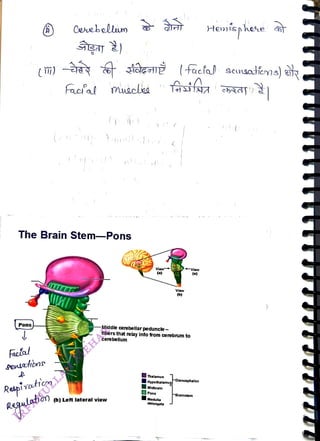 (ii) Cerebellum के दोनो Hemisphere को
जोड़ता है।
(iii) चेहरे की संवेदनाएँ (facial sensations) और
Facial muscles नियंत्रित करता है।
The Brain Stem—Pons
View (a)
View (a)
View (b)
Pons
Middle cerebellar peduncle—
fibers that relay info from cerebrum to
cerebellum
Facial
sensations
&
Respiration
Regulation
(b) Left lateral view
Thalamus
Hypothalamus
Diencephalon
Midbrain
Pons
Medulla
oblongata
Brainstem